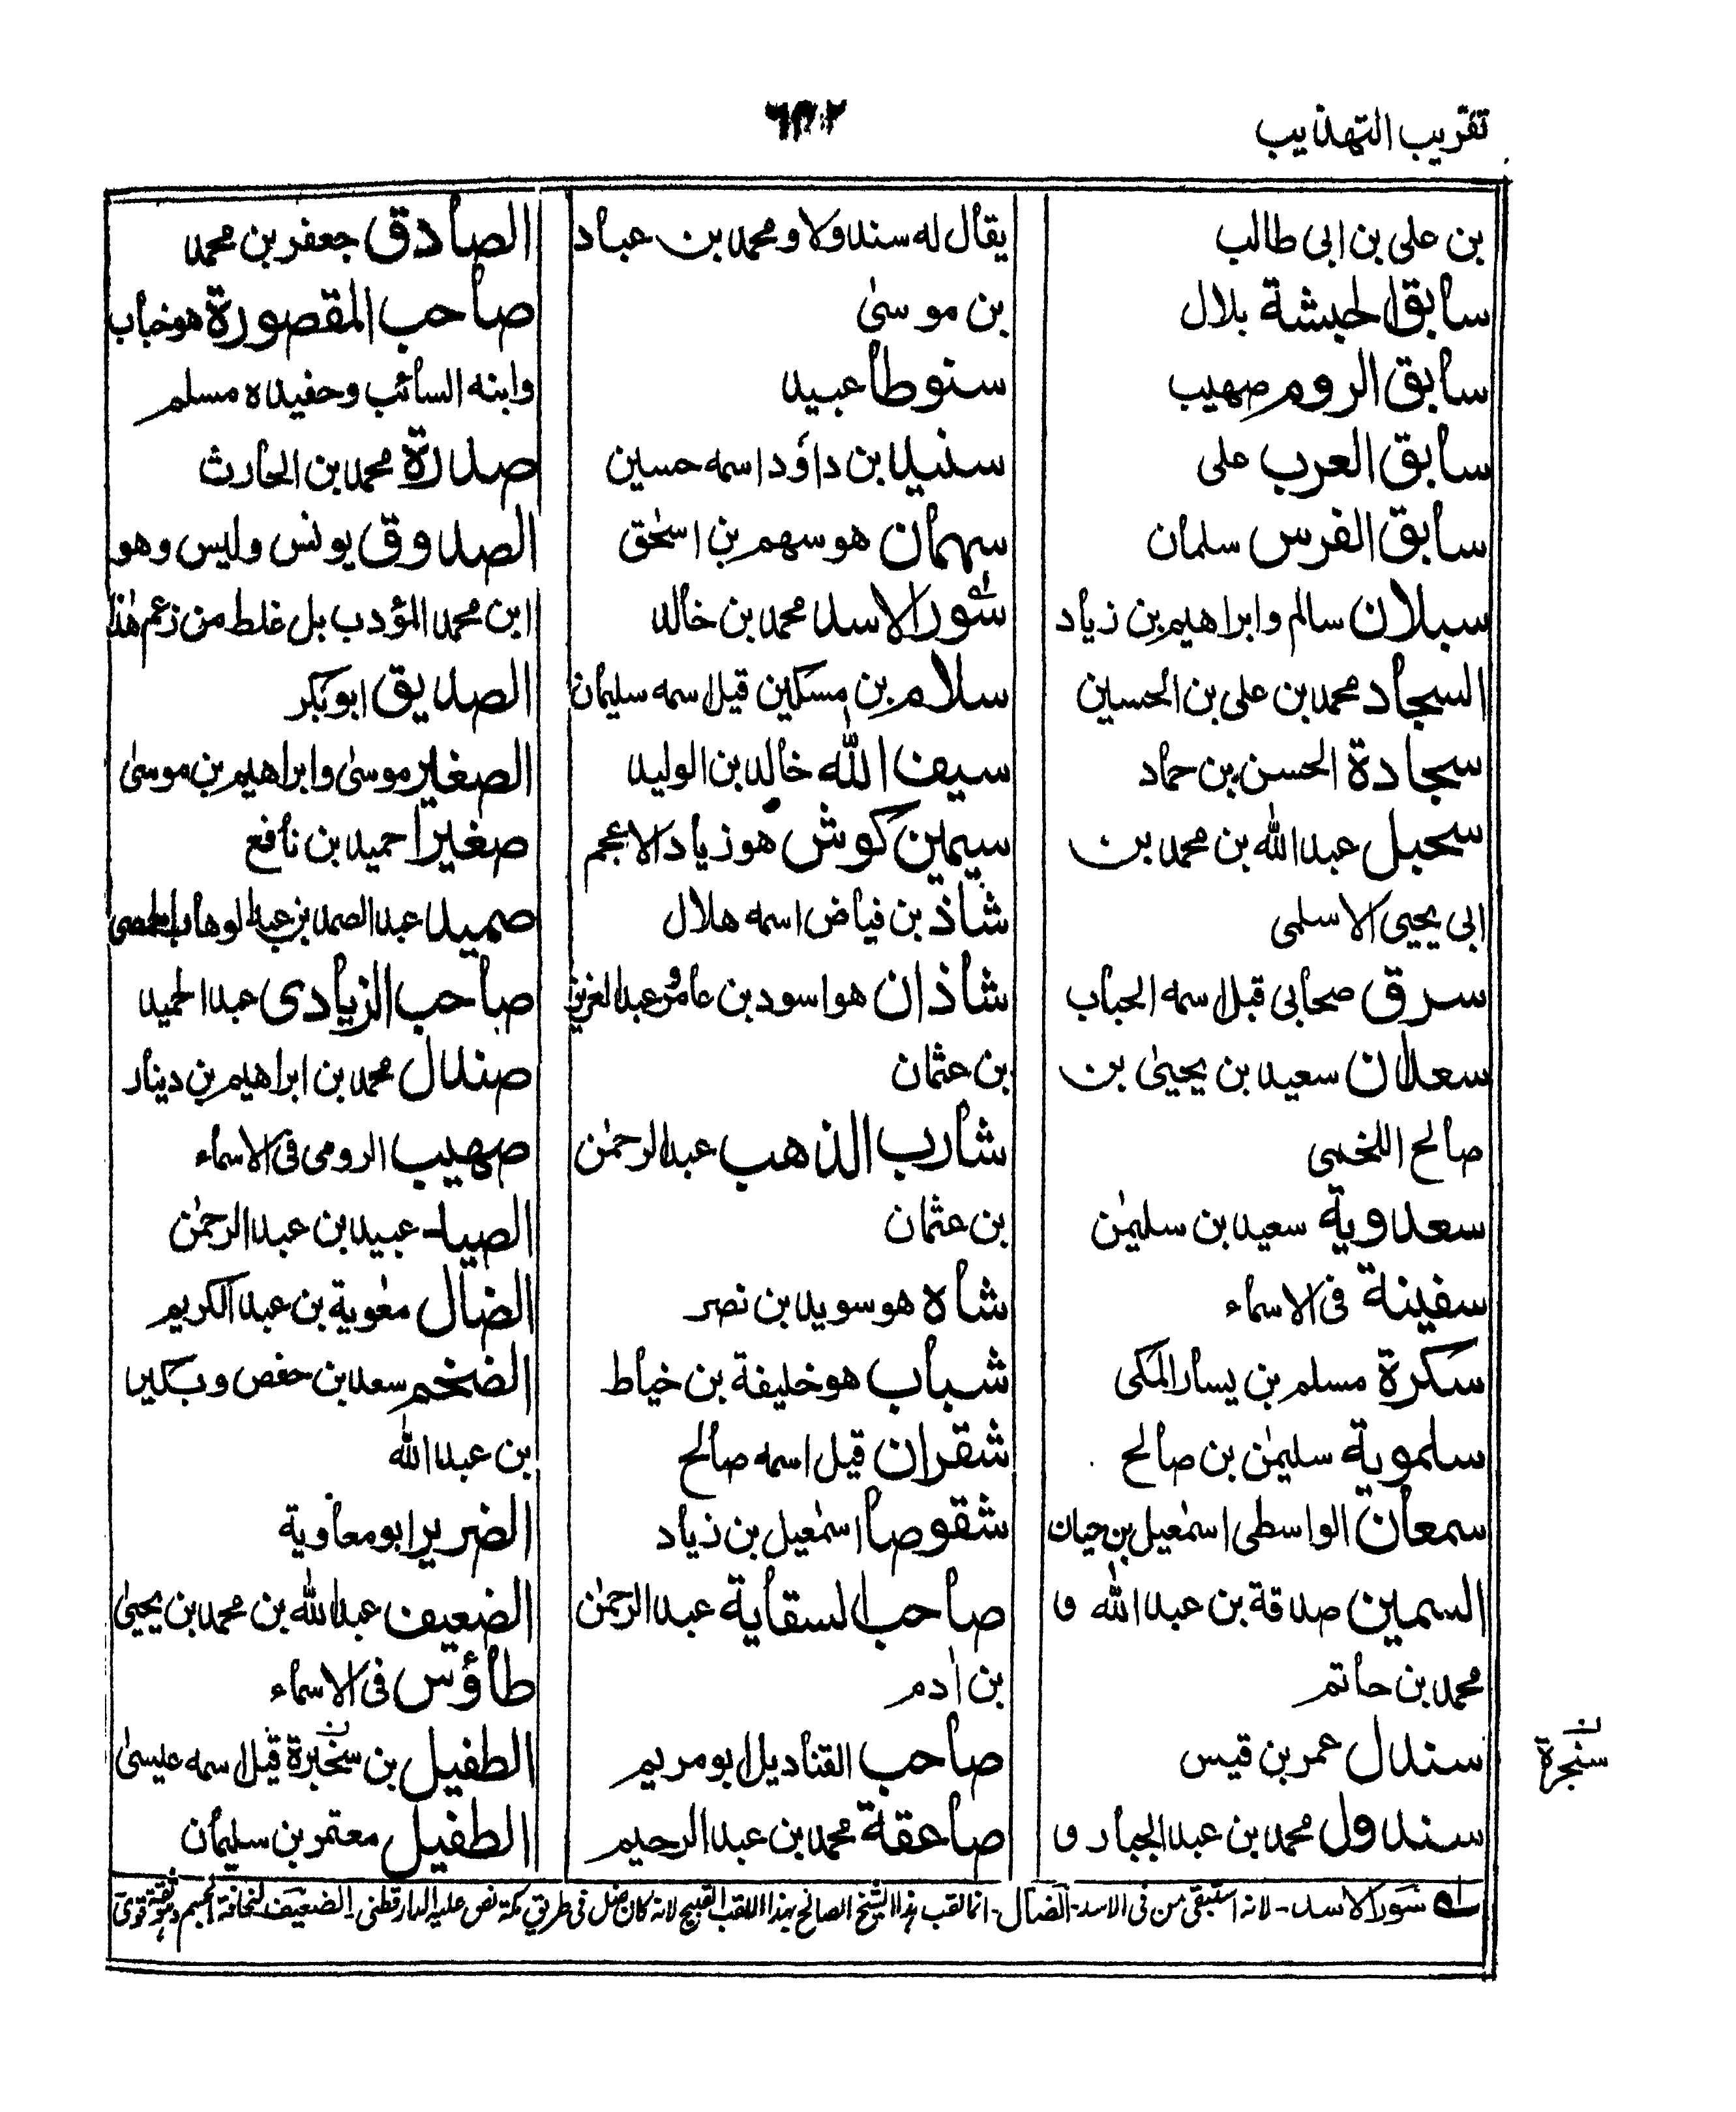 تقريب التهذيب
بن على بن ابى طالب
سابق الحبشة بلال
سابق الروم صهيب
سابق العرب على
سابق الفرس سلمان
سبلان سالم وابراهيم بن زياد
السجاد محمد بن على بن الحسين
سجادة الحسن بن حماد
سحبل عبد الله بن محمد بن
ابى يحيى الاسلمى
سرق صحابى قيل اسمه الحباب
سعدان سعيد بن يحيىٰ بن
صالح اللخمى
سعدوية سعيد بن سليمٰن
سفينة فى الاسماء
سكرة مسلم بن يسار المكى
سلموية سليمٰن بن صالح
سمعان الواسطى اسمٰعيل بن حيان
السمين صدقة بن عبد الله و
محمد بن حاتم
سندل عمر بن قيس
سندول محمد بن عبد الجبار و
يقال له سندولا ومحمد بن عباد
بن موسىٰ
سنوطا عبيد
سنيد بن داؤد اسمه حسين
سهمان هو سهم بن اسحٰق
سؤر الاسد محمد بن خالد
سلام بن مسكين قيل اسمه سليمان
سيف الله خالد بن الوليد
سيمين كوش هو زياد الاعجم
شاذ بن فياض اسمه هلال
شاذان هو اسود بن عامر وعبد العزيز
بن عثمان
شارب الذهب عبد الرحمٰن
بن عثمان
شاه هو سويد بن نصر
شباب هو خليفة بن خياط
شقران قيل اسمه صالح
شقوصا اسمٰعيل بن زياد
صاحب السقاية عبد الرحمٰن
بن اٰدم
صاحب القناديل ابو مريم
صاعقة محمد بن عبد الرحيم
الصادق جعفر بن محمد
صاحب المقصورة هو خباب
وابنه السائب وحفيده مسلم
صدرة محمد بن الحارث
الصدوق يونس وليس وهو
ابن محمد المؤدب بل غلط من زعم هٰذا
الصديق ابو بكر
الصغير موسىٰ وابراهيم بن موسىٰ
صغيرا حميد بن نافع
صميد عبد الصمد بن عبد الوهاب الحمصى
صاحب الزيادى عبد الحميد
صندل محمد بن ابراهيم بن دينار
صهيب الرومى فى الاسماء
الصيد عبيد بن عبد الرحمٰن
الضال معٰوية بن عبد الكريم
الضخم سعد بن حفص وبكير
بن عبد الله
الضرير ابو معاوية
الضعيف عبد الله بن محمد بن يحيىٰ
طاؤس فى الاسماء
الطفيل بن سخبرة قيل اسمه عيسىٰ
الطفيل معتمر بن سليمان
سنجرة
سؤر الاسد - لانه استبقى من فى الاسد - الضال - انما لقب هذا الشيخ الصالح بهذا اللقب القبيح لانه كان ضل فى طريق مكة نص عليه الدارقطنى - الضعيف لنحافة الجسم وهو ثقة قوى